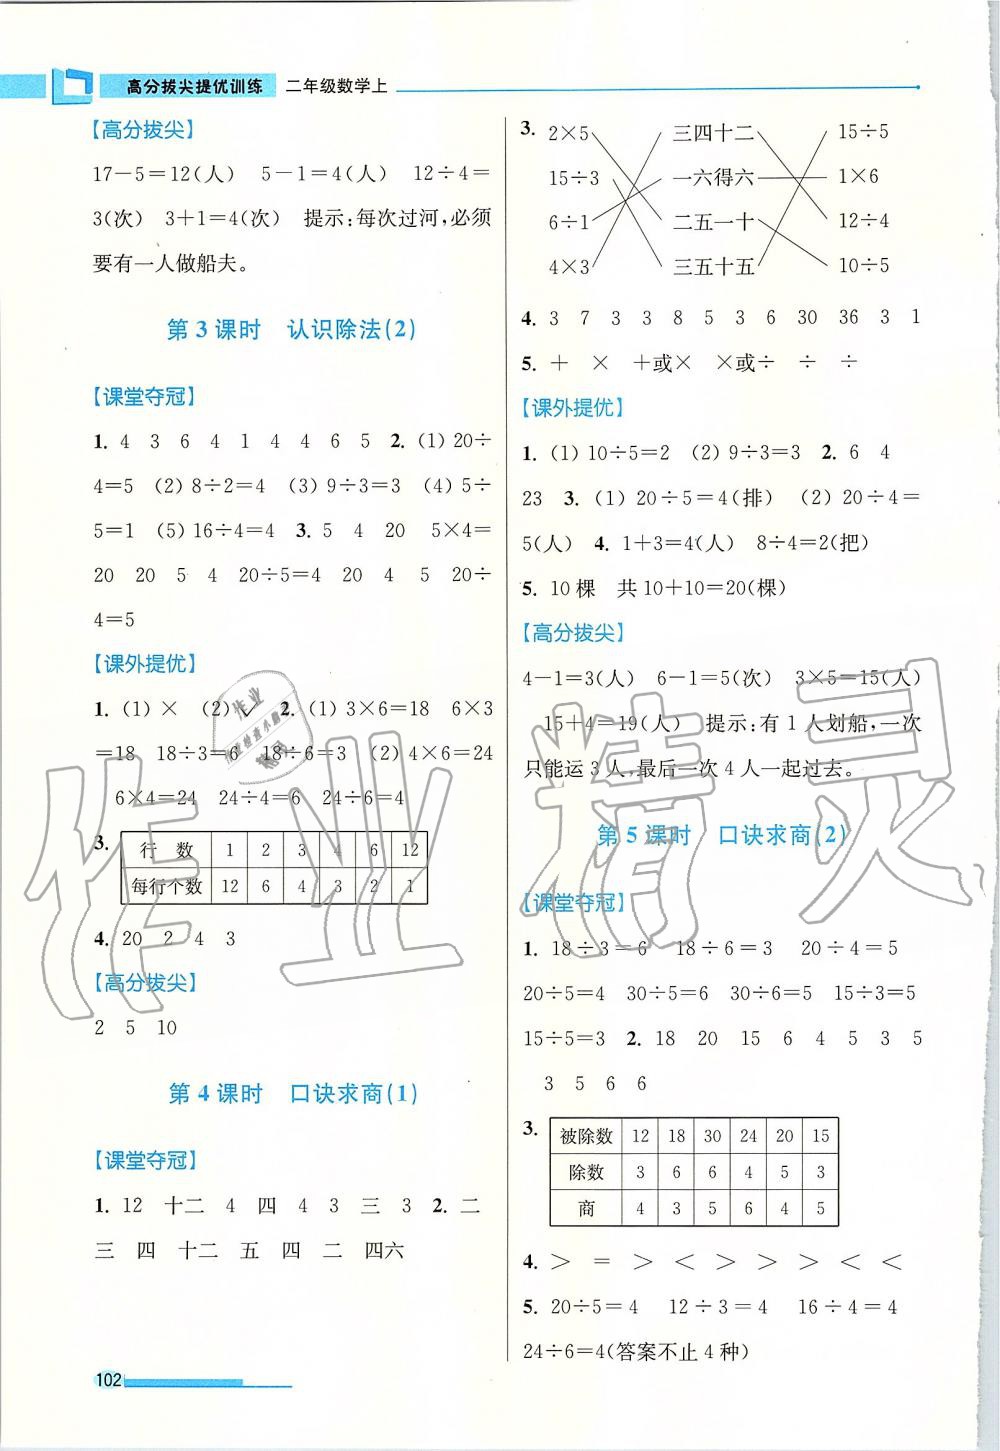 高分拔尖提优训练 二年级数学上
【高分拔尖】
17－5＝12(人) 5－1＝4(人) 12÷4＝
3(次) 3＋1＝4(次) 提示:每次过河,必须
要有一人做船夫。
第 3 课时 认识除法(2)
【课堂夺冠】
1. 4 3 6 4 1 4 4 6 5 2. (1) 20÷
4＝5 (2) 8÷2＝4 (3) 9÷3＝3 (4) 5÷
5＝1 (5) 16÷4＝4 3. 5 4 20 5×4＝
20 20 5 4 20÷5＝4 20 4 5 20÷
4＝5
【课外提优】
1. (1) × (2) ✓ 2. (1) 3×6＝18 6×3
＝18 18÷3＝6 18÷6＝3 (2) 4×6＝24
6×4＝24 24÷4＝6 24÷6＝4
3.
行 数 1 2 3 4 6 12
每行个数 12 6 4 3 2 1
4. 20 2 4 3
【高分拔尖】
2 5 10
第 4 课时 口诀求商(1)
【课堂夺冠】
1. 12 十二 4 四 4 3 三 3 2. 二
三 四 十二 五 四 二 四六
3. 2×5 三四十二 15÷5
15÷3 一六得六 1×6
6÷1 二五一十 12÷4
4×3 三五十五 10÷5
4. 3 7 3 3 8 5 3 6 30 36 3 1
5. ＋ × ＋或× ×或÷ ÷ ÷
【课外提优】
1. (1) 10÷5＝2 (2) 9÷3＝3 2. 6 4
23 3. (1) 20÷5＝4(排) (2) 20÷4＝
5(人) 4. 1＋3＝4(人) 8÷4＝2(把)
5. 10 棵 共 10＋10＝20(棵)
【高分拔尖】
4－1＝3(人) 6－1＝5(次) 3×5＝15(人)
15＋4＝19(人) 提示:有 1 人划船,一次
只能运 3 人,最后一次 4 人一起过去。
第 5 课时 口诀求商(2)
【课堂夺冠】
1. 18÷3＝6 18÷6＝3 20÷4＝5
20÷5＝4 30÷5＝6 30÷6＝5 15÷3＝5
15÷5＝3 2. 18 20 15 6 4 5 3 5
3 5 6 6
3.
被除数 12 18 30 24 20 15
除数 3 6 6 4 5 3
商 4 3 5 6 4 5
4. ＞ ＝ ＞ ＜ ＞ ＞ ＞ ＜ ＜
5. 20÷5＝4 12÷3＝4 16÷4＝4
24÷6＝4(答案不止 4 种)
102
作业精灵